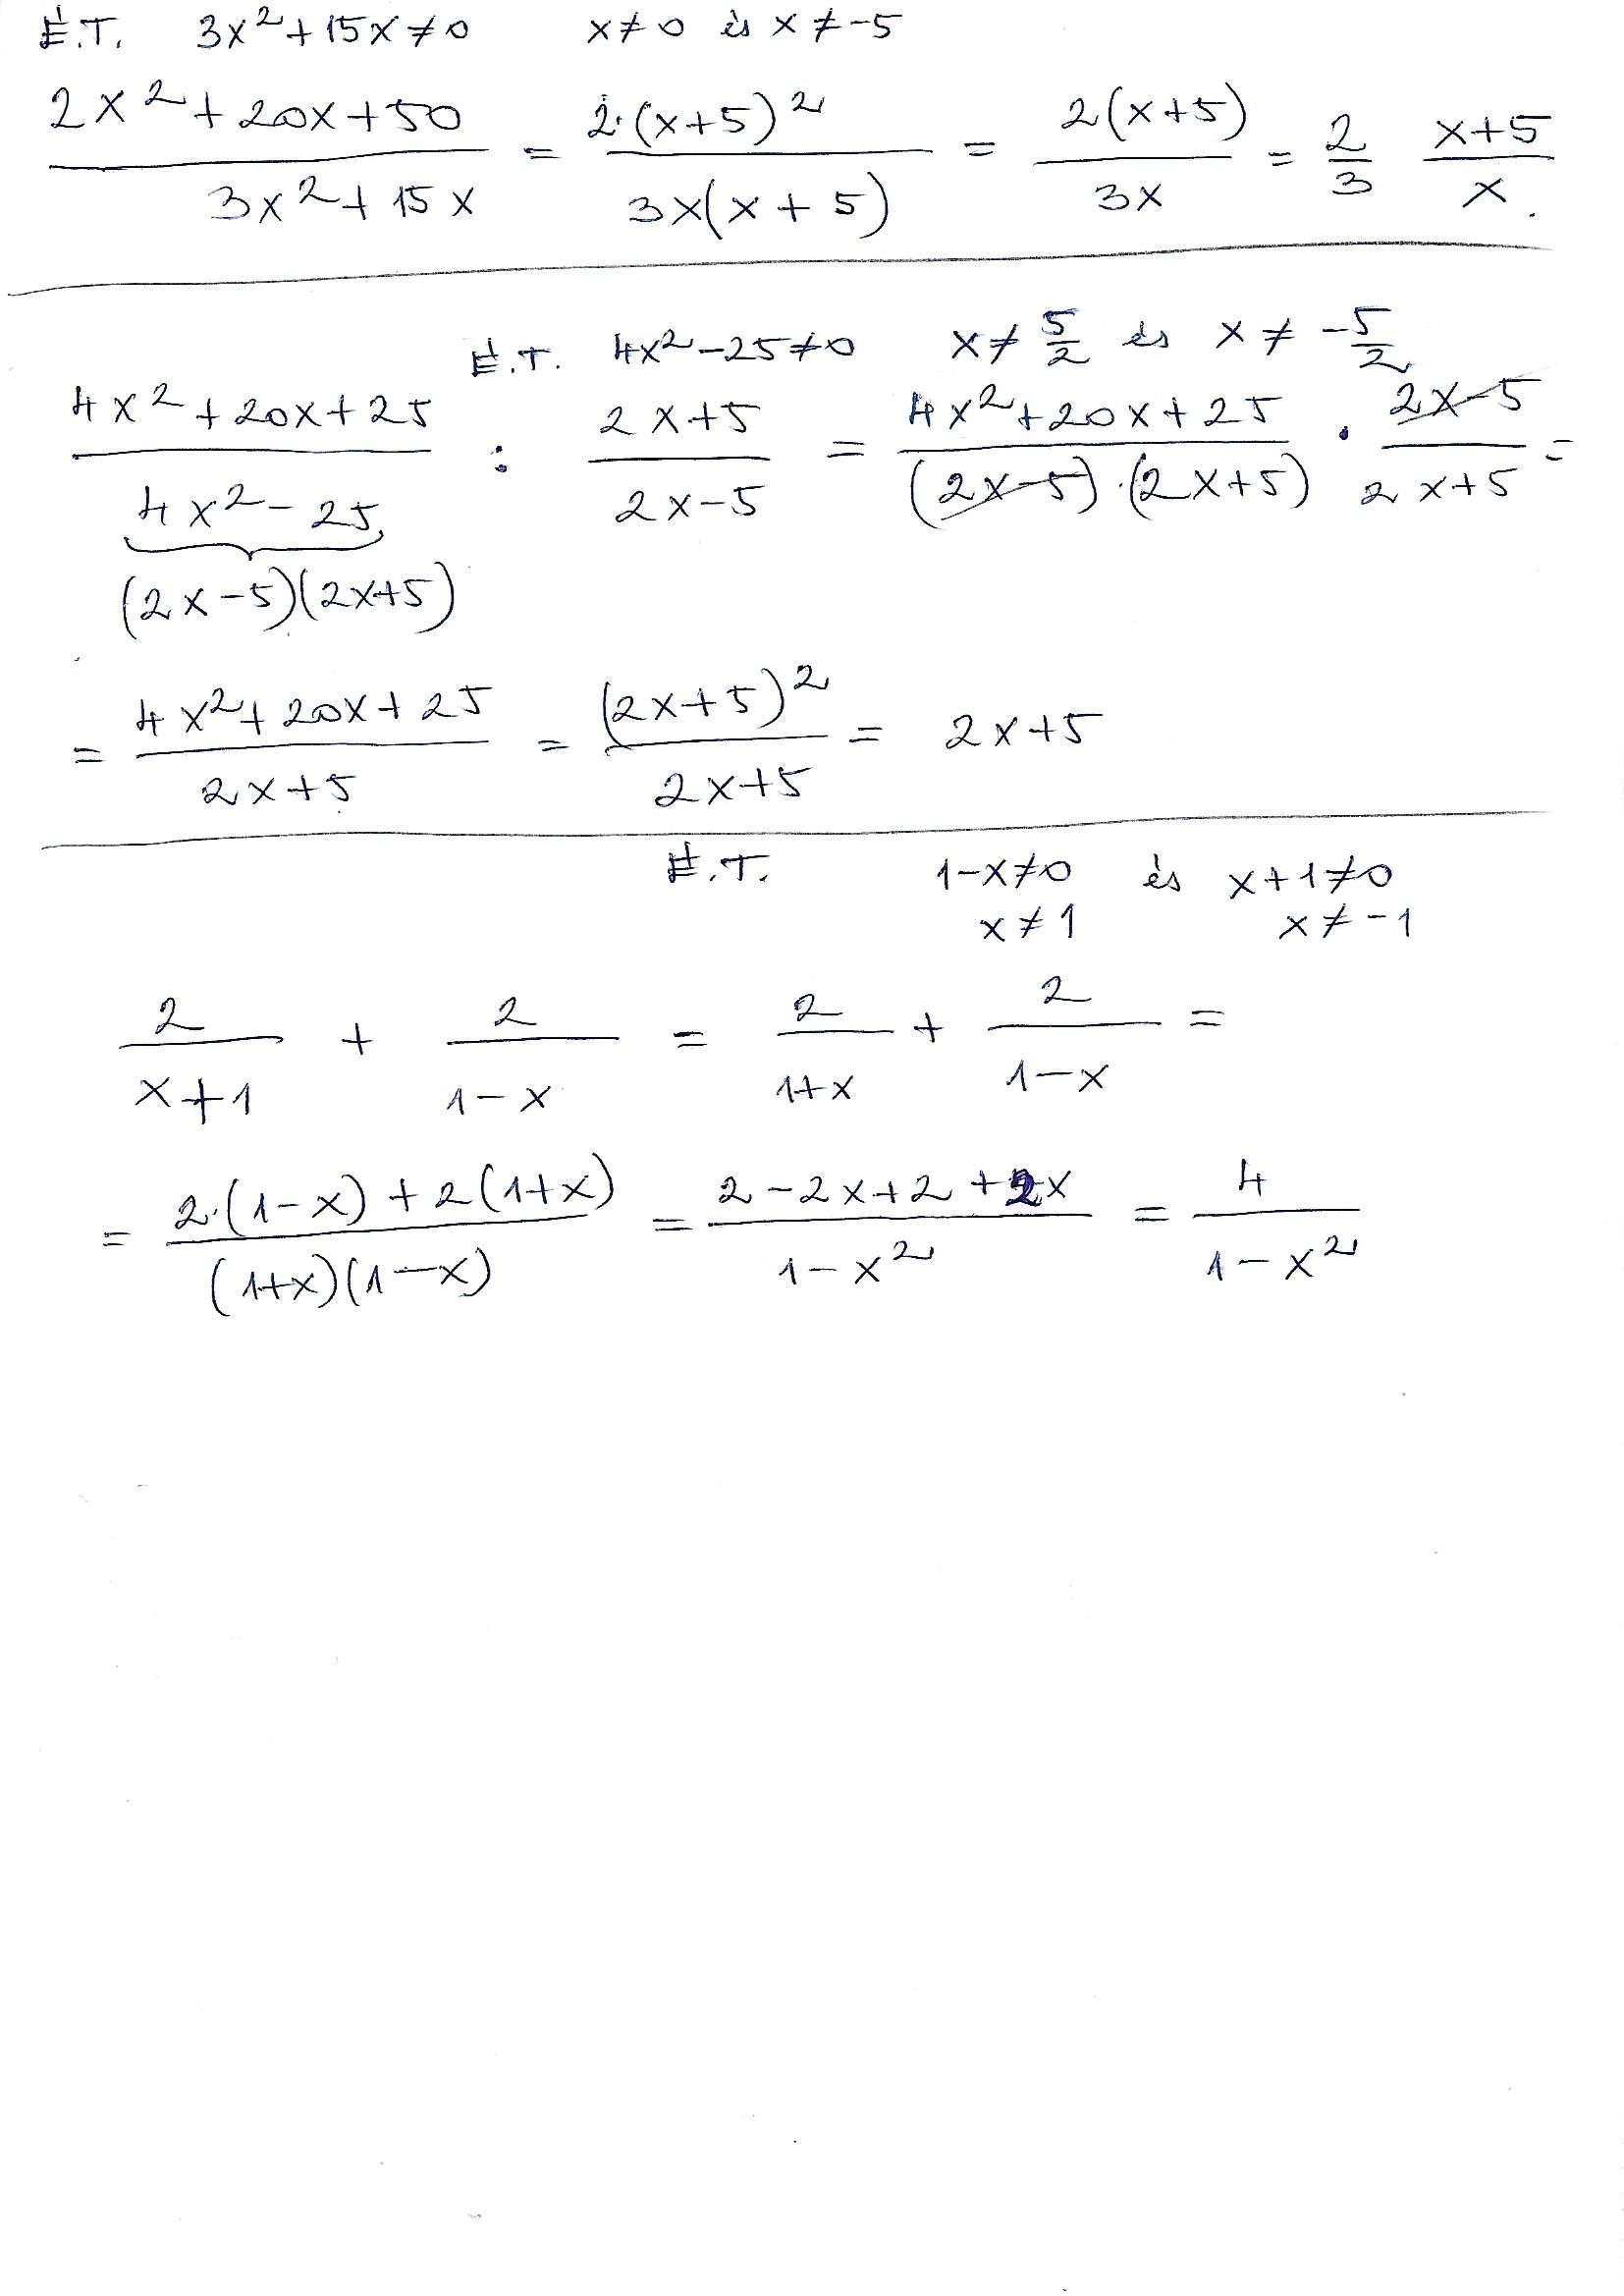 É.T. 3x²+15x≠0 x≠0 és x≠-5
(2x²+20x+50)/(3x²+15x) = (2·(x+5)²)/(3x(x+5)) = (2(x+5))/(3x) = 2/3 (x+5)/x.
É.T. 4x²-25≠0 x≠5/2 és x≠-5/2
(4x²+20x+25)/(4x²-25) : (2x+5)/(2x-5) = (4x²+20x+25)/((2x-5)·(2x+5)) · (2x-5)/(2x+5) =
(2x-5)(2x+5)
= (4x²+20x+25)/(2x+5) = (2x+5)²/(2x+5) = 2x+5
É.T. 1-x≠0 és x+1≠0
x≠1 x≠-1
2/(x+1) + 2/(1-x) = 2/(1+x) + 2/(1-x) =
= (2·(1-x)+2(1+x))/((1+x)(1-x)) = (2-2x+2+2x)/(1-x²) = 4/(1-x²)